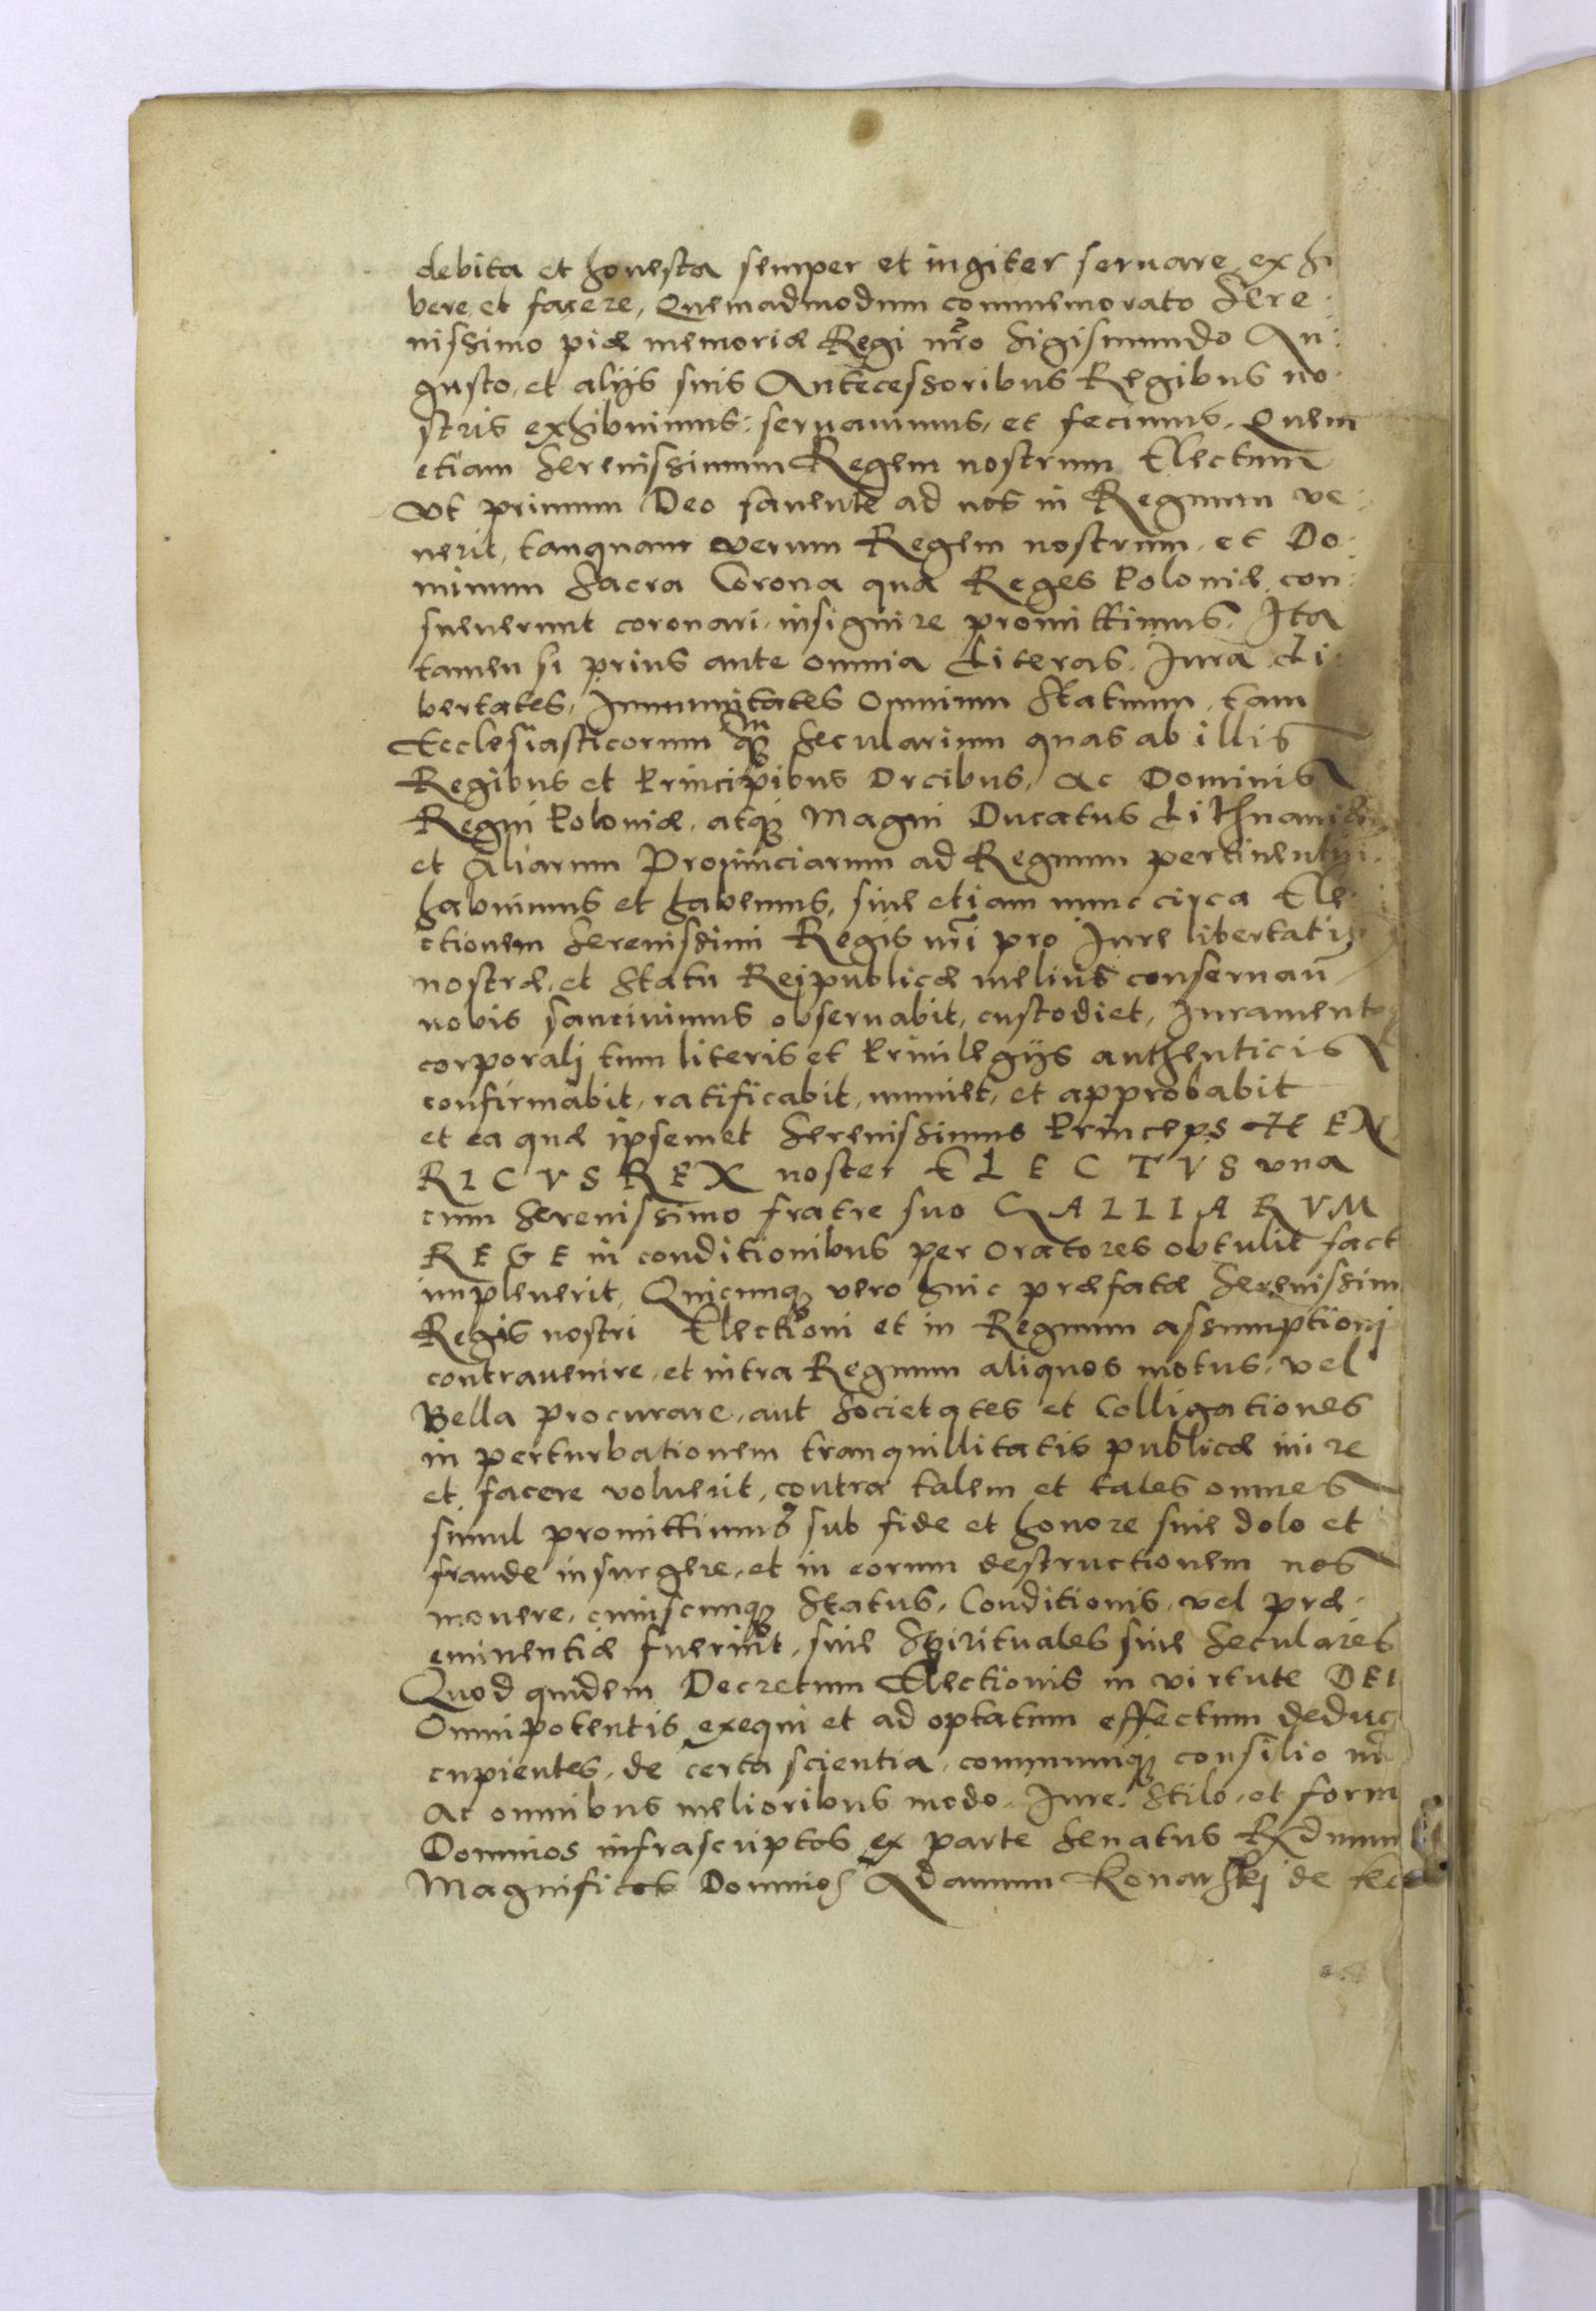 debita et honesta semper et iugiter seruare exhi
bere et facere, Quemadmodum commemorato Sere
nissimo piæ memoriæ Regi nr̃o Sigismundo Au:
gusto, et alijs suis Antecessoribus Regibus no
stris exhibuimus: seruauimus, et fecimus. Quem
etiam Serenissimum Regem nostrum Electum
vt primum Deo fauente ad nos in Regnum ve:
nerit, tanquam verum Regem nostrum et Do:
minum Sacra Corona qua Reges Poloniæ con:
sueuerunt coronari, insignire promittimus. Ita
tamen si prius ante omnia Literas, Iura Li:
bertates, Immunitates Omnium Statuum tam
Ecclesiasticorum qm̃ Secularium quas ab illis
Regibus et Principibus Dvcibus, Ac Dominis
Regni Poloniæ, atq3 Magni Ducatus Lithuaniæ
et Aliarum Prouinciarum ad Regnum pertinentiū.
habuimus et habemus, siue etiam nunc circa Ele:
ctionem Serenissimi Regis nr̃i pro Iure libertatis
nostræ, et Statu Reipublicæ melius conseruan̄
nobis sanciuimus obseruabit, custodiet, Iuramento
corporalj tum literis et Priuilegijs authenticis
confirmabit, ratificabit, muniet, et approbabit
et ea quæ ipsemet Serenissimus Princeps HEN
RICVS REX noster ELECTVS vna
cum Serenissimo fratre suo GALLIARVM
REGE in conditionibus per Oratores obtulit fact
impleuerit, Quicunq3 vero huic præfatæ Serenissim
Regis nostri Electioni et in Regnum assumptionj
contrauenire, et intra Regnum aliquos motus, vel
Bella procurare, aut Societates et Colligationes
in perturbationem tranquillitatis publicæ inire
et facere voluerit, contra talem et tales omnes
simul promittimus sub fide et honore sine dolo et
fraude insurgere, et in eorum destructionem nos
mouere, cuiuscunq3 Status, Conditionis, vel præ
eminentiæ fuerint, siue Spirituales siue Seculares
Quod quidem Decretum Electionis in virtute DEI
Omnipotentis exequi et ad optatum effectum deduc
cupientes, de certa scientia, communiq3 consilio nr̃
Ac omnibus melioribus modo, Iure, Stilo, et form
Dominos infrascriptos ex parte Senatus Rxdmum
Magnificos Dominos Adamum Konarskj de